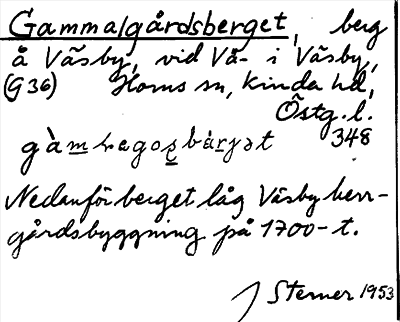 Gammalgårdsberget, berg
å Väsby, vid Vä- i Väsby,
(G36) Horns sn, Kinda hd,
Östg.l.
348
Nedanför berget låg Väsby herr-
gårdsbyggning på 1700-t.
J Sterner 1953